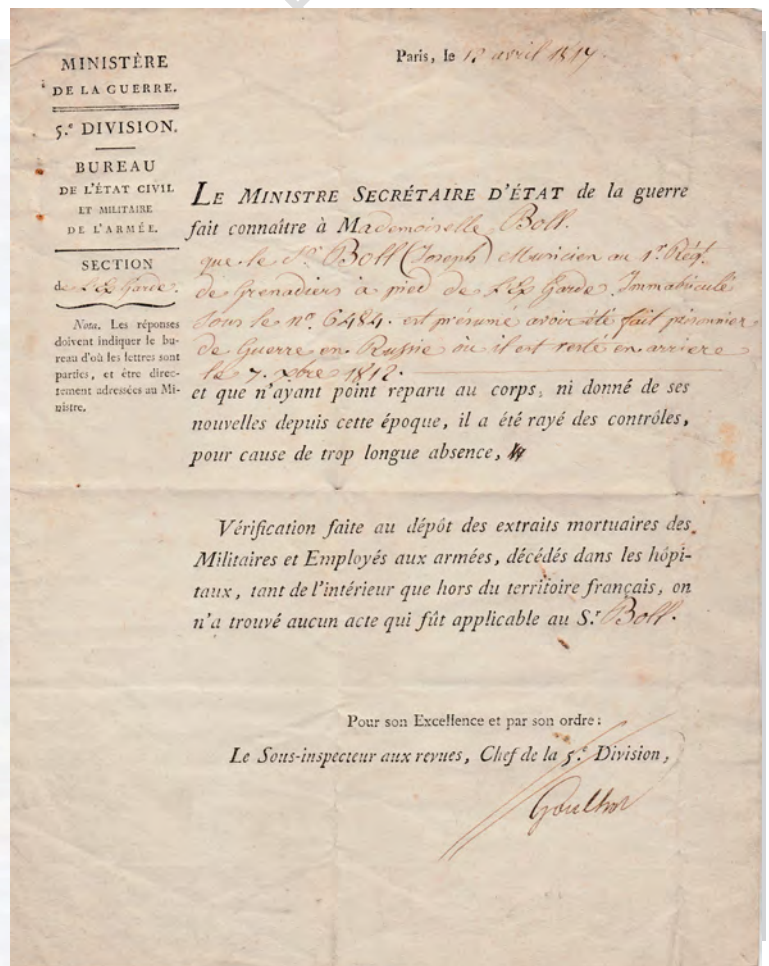 MINISTÈRE
DE LA GUERRE.
5.e DIVISION.
BUREAU
DE L'ÉTAT CIVIL
ET MILITAIRE
DE L'ARMÉE.
SECTION
de L'Ex Garde.
Nota. Les réponses
doivent indiquer le bu-
reau d'où les lettres sont
parties, et être direc-
tement adressées au Mi-
nistre.
Paris, le avril 1817.
LE MINISTRE SECRÉTAIRE D'ÉTAT de la guerre
fait connaître à Mademoiselle Boll.
que le Sr. Boll (Joseph) Musicien au 1r. Régt.
de Grenadiers à pied de L'Ex Garde. Immatriculé
sous le no. 6484. est présumé avoir été fait prisonnier
de Guerre en Russie où il est resté en arriere
le 7. xbre 1812.
et que n'ayant point reparu au corps, ni donné de ses
nouvelles depuis cette époque, il a été rayé des contrôles,
pour cause de trop longue absence,
Vérification faite au dépôt des extraits mortuaires des
Militaires et Employés aux armées, décédés dans les hôpi-
taux, tant de l'intérieur que hors du territoire français, on
n'a trouvé aucun acte qui fût applicable au S.r Boll.
Pour son Excellence et par son ordre:
Le Sous-inspecteur aux revues, Chef de la 5.e Division,